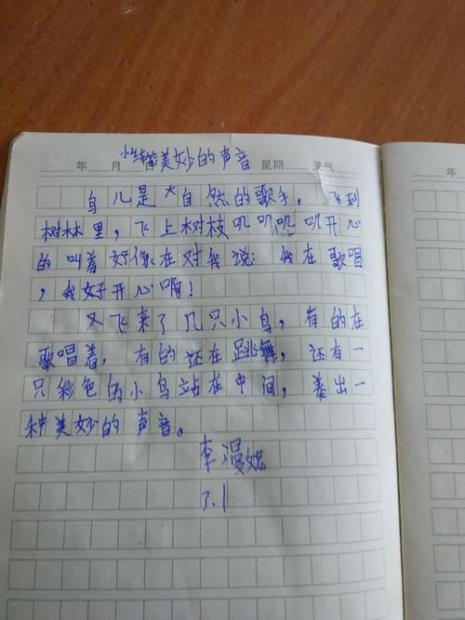 年 月 日 星期 天气 年
美妙的声音
鸟儿是大自然的歌手，飞到
树林里，飞上树枝叽叽叽叽开心
的叫着好像在对我说：我在歌唱
，我好开心啊！
又飞来了几只小鸟，有的在
歌唱着，有的还在跳舞，还有一
只彩色的小鸟站在中间，奏出一
种美妙的声音。
李漫妮
3.1